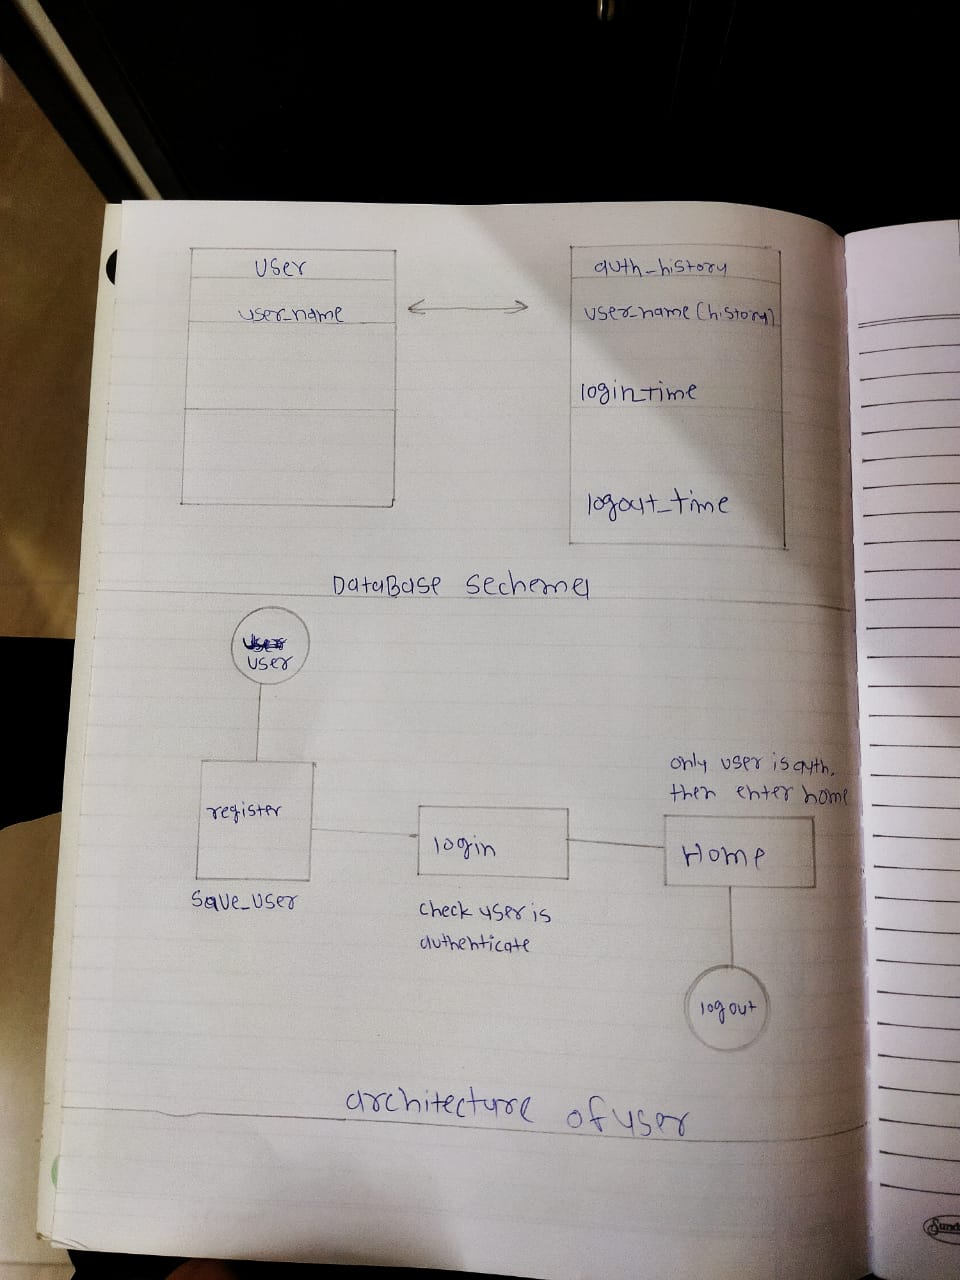 user
user_name
auth_history
user_name (history)
login_time
logout_time
DataBase Sechema
user
register
save_user
login
check user is
authenticate
only user is auth.
then enter home
Home
logout
architecture of user